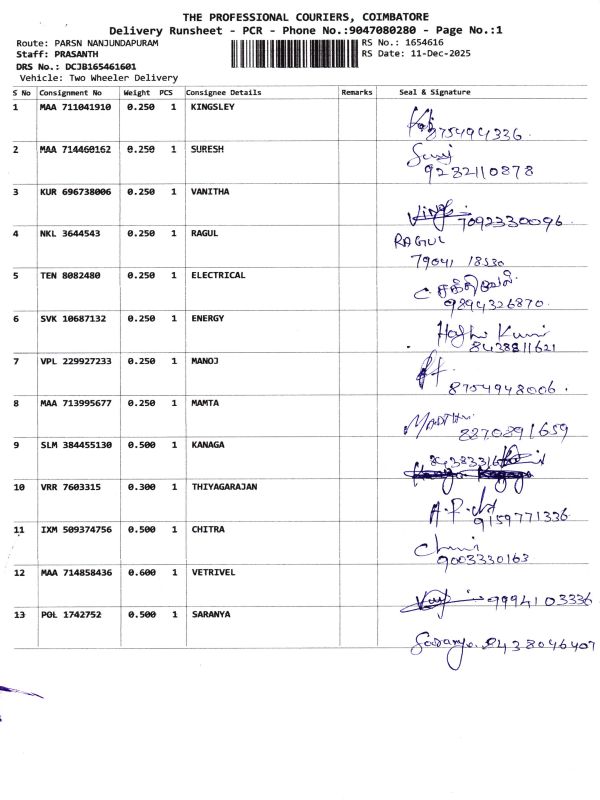 THE PROFESSIONAL COURIERS, COIMBATORE
Delivery Runsheet - PCR - Phone No.:9047080280 - Page No.:1
Route: PARSN NANJUNDAPURAM RS No.: 1654616
Staff: PRASANTH RS Date: 11-Dec-2025
DRS No.: DCJB165461601
Vehicle: Two Wheeler Delivery
S No Consignment No Weight PCS Consignee Details Remarks Seal & Signature
1 MAA 711041910 0.250 1 KINGSLEY
875494336.
2 MAA 714460162 0.250 1 SURESH
9232110878
3 KUR 696738006 0.250 1 VANITHA
7092330096.
4 NKL 3644543 0.250 1 RAGUL RAGUL
79041 18530
5 TEN 8082480 0.250 1 ELECTRICAL
9894326870.
6 SVK 10687132 0.250 1 ENERGY
8438811621
7 VPL 229927233 0.250 1 MANOJ
8754948006.
8 MAA 713995677 0.250 1 MAMTA
8270891659
9 SLM 384455130 0.500 1 KANAGA
10 VRR 7603315 0.300 1 THIYAGARAJAN
9159771336
11 IXM 509374756 0.500 1 CHITRA
9003330163
12 MAA 714858436 0.600 1 VETRIVEL
9994103336
13 POL 1742752 0.500 1 SARANYA
Saranya. 9438046407